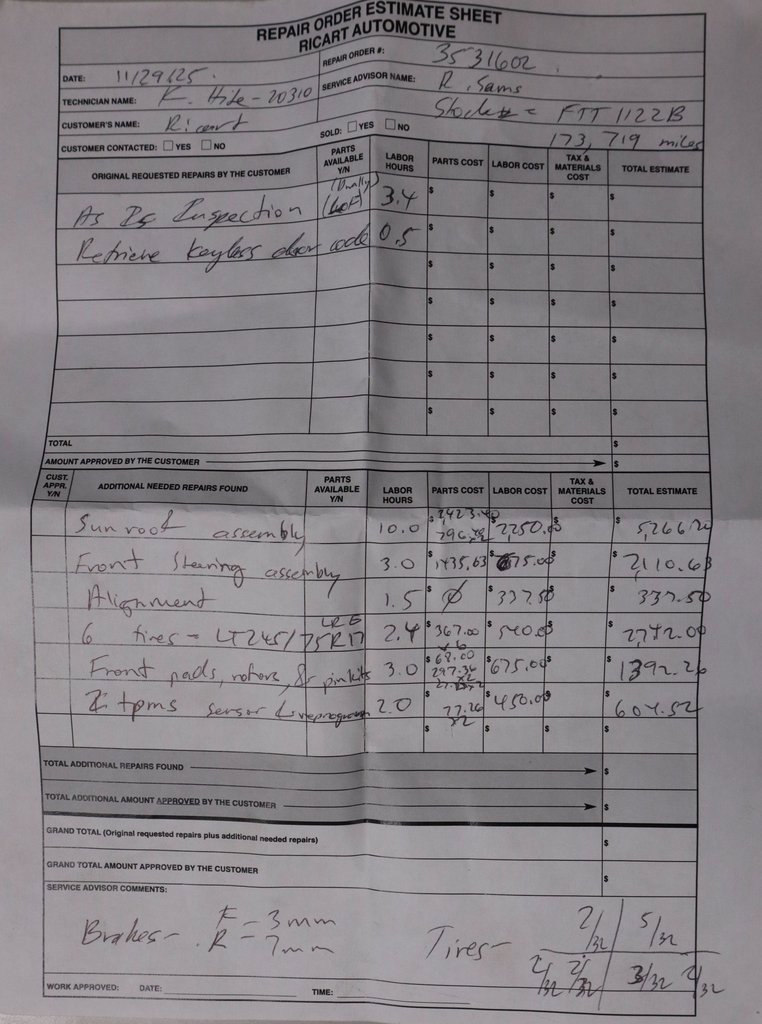 REPAIR ORDER ESTIMATE SHEET
RICART AUTOMOTIVE
DATE: 11/29/25. REPAIR ORDER #: 3531602
TECHNICIAN NAME: K. Hite - 20310 SERVICE ADVISOR NAME: R. Sams
CUSTOMER'S NAME: Ricart Stock # = FTT1122B
CUSTOMER CONTACTED: YES NO SOLD: YES NO 173,719 miles
ORIGINAL REQUESTED REPAIRS BY THE CUSTOMER PARTS AVAILABLE Y/N LABOR HOURS PARTS COST LABOR COST TAX & MATERIALS COST TOTAL ESTIMATE
As Is Inspection (Dually) (LOF) 3.4 $ $ $ $
Retrieve keyless door code 0.5 $ $ $ $
$ $ $ $
$ $ $ $
$ $ $ $
$ $ $ $
$ $ $ $
TOTAL $
AMOUNT APPROVED BY THE CUSTOMER $
CUST. APPR. Y/N ADDITIONAL NEEDED REPAIRS FOUND PARTS AVAILABLE Y/N LABOR HOURS PARTS COST LABOR COST TAX & MATERIALS COST TOTAL ESTIMATE
Sunroof assembly 10.0 $ $2250.00 $ $
Front Steering assembly 3.0 $1435.63 $675.00 $ $2,110.63
Alignment 1.5 $ Ø $337.50 $ $337.50
6 tires - LT245/75R17 LRE 2.4 $367.00 x6 $540.00 $ $2,742.00
Front pads, rotors, & pin kits 3.0 $68.00 297.36 x2 $675.00 $ $1392.26
2 tpms sensor & reprogram 2.0 $77.26 x2 $450.00 $ $604.52
$ $ $ $
TOTAL ADDITIONAL REPAIRS FOUND $
TOTAL ADDITIONAL AMOUNT APPROVED BY THE CUSTOMER $
GRAND TOTAL (Original requested repairs plus additional needed repairs) $
GRAND TOTAL AMOUNT APPROVED BY THE CUSTOMER $
SERVICE ADVISOR COMMENTS:
Brakes - F - 3mm
R - 7mm
Tires - 2/32 5/32
2/32 2/32 3/32 2/32
WORK APPROVED: DATE: TIME: